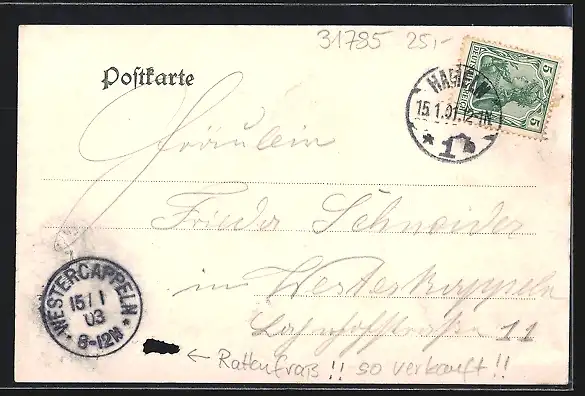 31785 25,-
Postkarte
HAMELN
15.1.01.12-1N
* 1 b
5
5
Fräulein
Frieda Schneider
in Westerkappeln
Bahnhofstraße 11
* WESTERCAPPELN *
15/1
03
8-12N
← Rattenfraß!! so verkauft!!